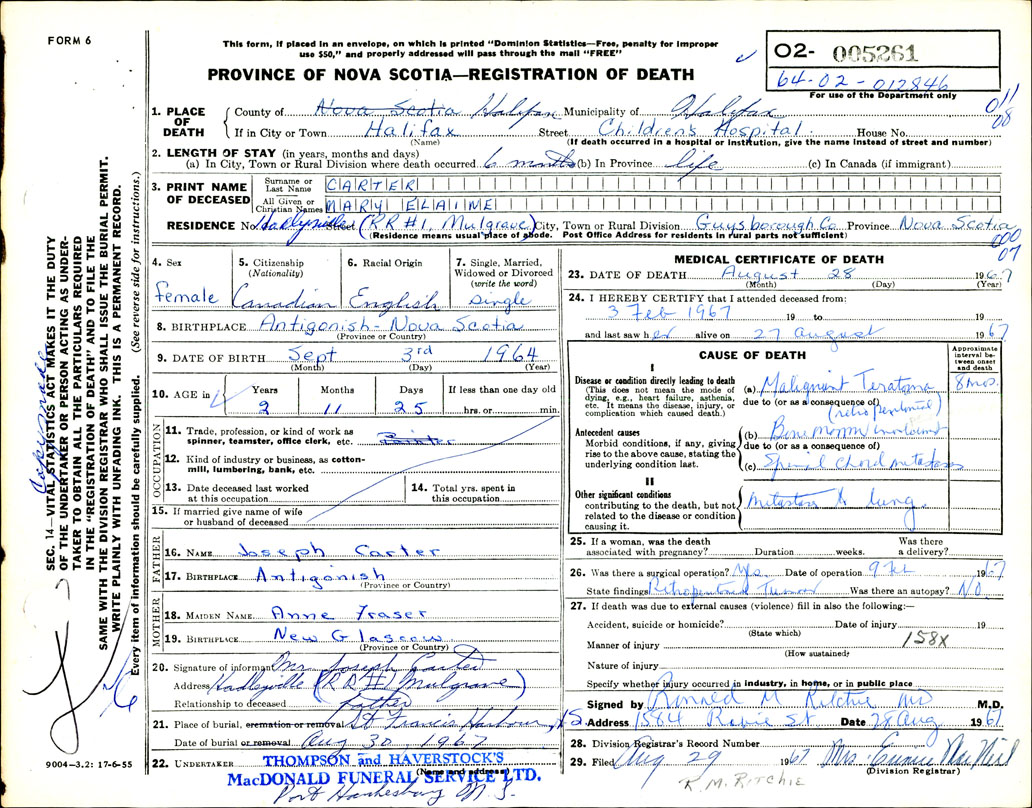 FORM 6
This form, if placed in an envelope, on which is printed "Dominion Statistics—Free, penalty for improper
use $50," and properly addressed will pass through the mail "FREE"
PROVINCE OF NOVA SCOTIA—REGISTRATION OF DEATH
O2- 005261
64-02-012846
For use of the Department only
011
08
1. PLACE OF DEATH
County of Nova Scotia Halifax Municipality of Halifax
If in City or Town Halifax Street Children's Hospital House No.
(Name) (If death occurred in a hospital or institution, give the name instead of street and number)
2. LENGTH OF STAY (in years, months and days)
(a) In City, Town or Rural Division where death occurred 6 months (b) In Province life (c) In Canada (if immigrant)
3. PRINT NAME OF DECEASED
Surname or Last Name CARTER
All Given or Christian Names MARY ELAIME
RESIDENCE No. Hadleyville Street (RR#1, Mulgrave) City, Town or Rural Division Guysborough Co Province Nova Scotia
(Residence means usual place of abode. Post Office Address for residents in rural parts not sufficient)
000
07
4. Sex
female
5. Citizenship
(Nationality)
Canadian
6. Racial Origin
English
7. Single, Married,
Widowed or Divorced
(write the word)
single
8. BIRTHPLACE Antigonish - Nova Scotia
(Province or Country)
9. DATE OF BIRTH Sept 3rd 1964
(Month) (Day) (Year)
10. AGE in
Years Months Days If less than one day old
2 11 25 hrs. or min.
OCCUPATION
11. Trade, profession, or kind of work as
spinner, teamster, office clerk, etc.
12. Kind of industry or business, as cotton-
mill, lumbering, bank, etc.
13. Date deceased last worked
at this occupation
14. Total yrs. spent in
this occupation
15. If married give name of wife
or husband of deceased
FATHER
16. NAME Joseph Carter
17. BIRTHPLACE Antigonish
(Province or Country)
MOTHER
18. MAIDEN NAME Anne Fraser
19. BIRTHPLACE New Glascow
(Province or Country)
20. Signature of informant Mr Joseph Carter
Address Hadleyville (RR#1 Mulgrave)
Relationship to deceased father
21. Place of burial, cremation or removal St Francis Harbour, N.S.
Date of burial or removal Aug 30 1967
22. UNDERTAKER THOMPSON and HAVERSTOCK'S
(Name and address)
MacDONALD FUNERAL SERVICE LTD.
Port Hawkesbury N.S.
MEDICAL CERTIFICATE OF DEATH
23. DATE OF DEATH August 28 1967
(Month) (Day) (Year)
24. I HEREBY CERTIFY that I attended deceased from:
3 Feb 1967 19 to 19
and last saw her alive on 27 August 1967
CAUSE OF DEATH
Approximate interval between onset and death
I
Disease or condition directly leading to death
(This does not mean the mode of
dying, e.g., heart failure, asthenia,
etc. It means the disease, injury, or
complication which caused death.)
(a) Malignant Teratoma 8 mos.
due to (or as a consequence of)
(retroperitoneal)
Antecedent causes
Morbid conditions, if any, giving
rise to the above cause, stating the
underlying condition last.
(b) Bone marrow involvement
due to (or as a consequence of)
(c) Spinal chord metastases
II
Other significant conditions
contributing to the death, but not
related to the disease or condition
causing it.
Metastases to lung
25. If a woman, was the death
associated with pregnancy? Duration weeks. Was there
a delivery?
26. Was there a surgical operation? Yes Date of operation 9 Feb 1967
State findings Retroperitoneal Tumour Was there an autopsy? NO.
27. If death was due to external causes (violence) fill in also the following:—
Accident, suicide or homicide? Date of injury 19
(State which)
Manner of injury 158X
(How sustained)
Nature of injury
Specify whether injury occurred in industry, in home, or in public place
Signed by Ronald M Ritchie MD M.D.
Address 1584 Robie St Date 28 Aug 1967
28. Division Registrar's Record Number
29. Filed Aug 29 1967 Mrs Eunice MacNeil
(Division Registrar)
R. M. RITCHIE
SEC. 14—VITAL STATISTICS ACT MAKES IT THE DUTY
OF THE UNDERTAKER OR PERSON ACTING AS UNDER-
TAKER TO OBTAIN ALL THE PARTICULARS REQUIRED
IN THE "REGISTRATION OF DEATH" AND TO FILE THE
SAME WITH THE DIVISION REGISTRAR WHO SHALL ISSUE THE BURIAL PERMIT.
WRITE PLAINLY WITH UNFADING INK. THIS IS A PERMANENT RECORD.
Every item of information should be carefully supplied. (See reverse side for instructions.)
9004—3.2: 17-6-55